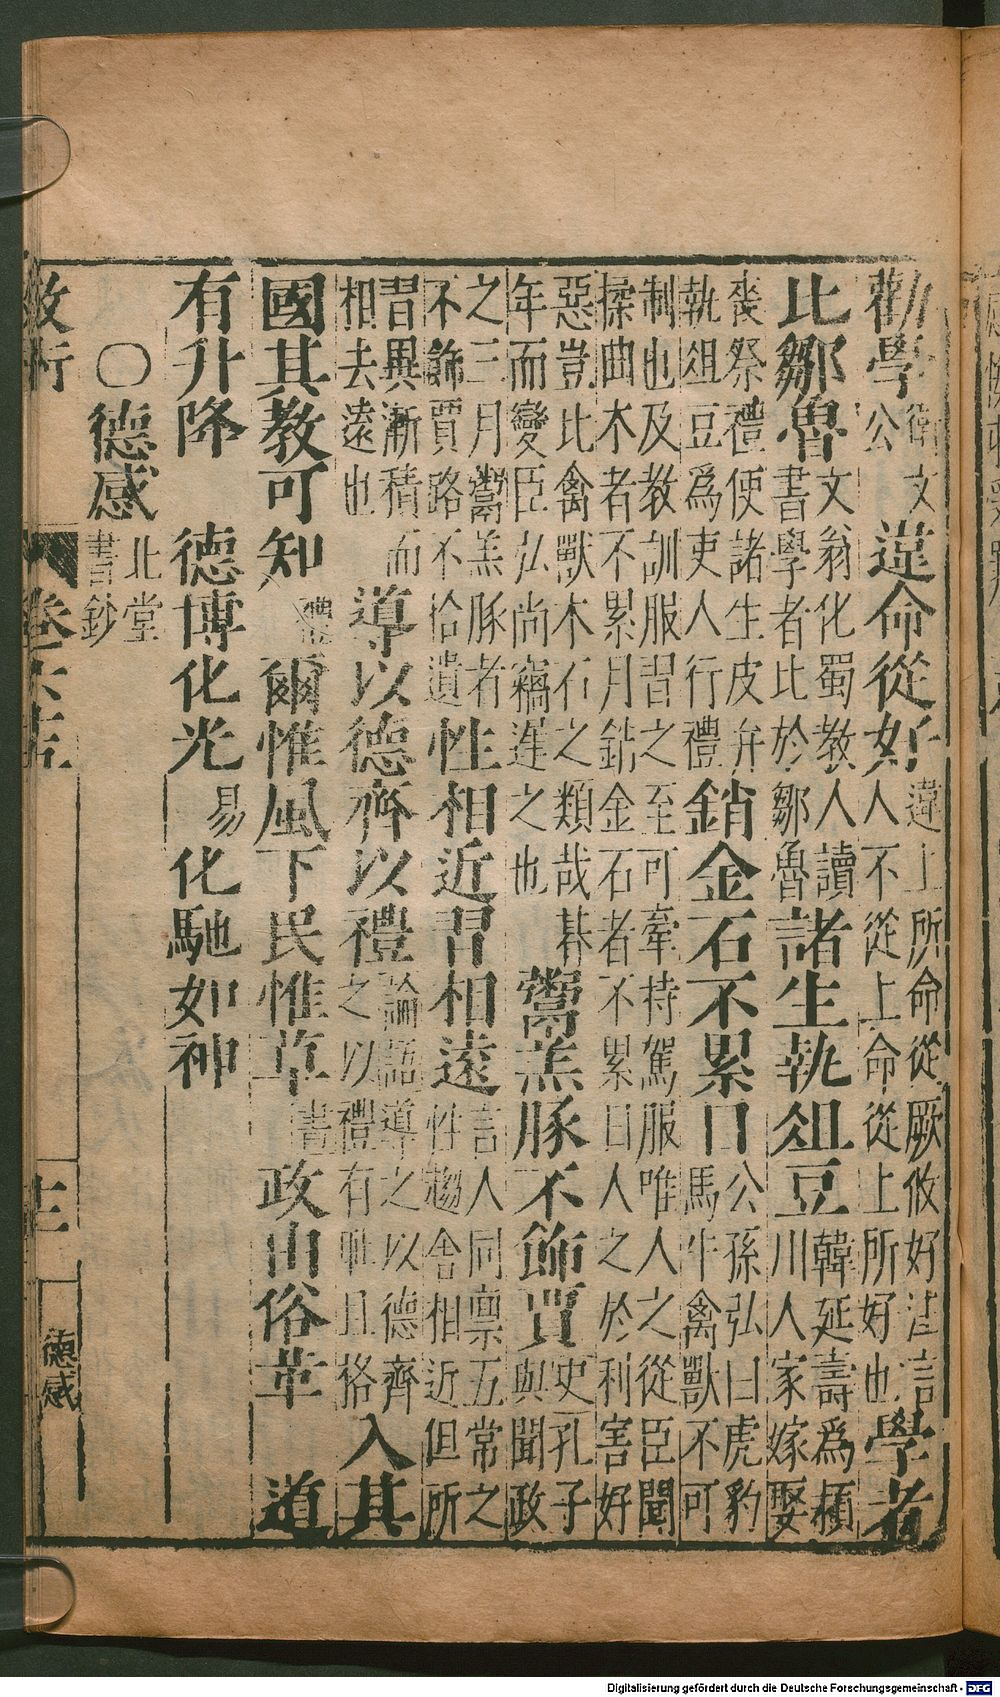 勸學衛文公違命從好違上所命從厥攸好注言人不從上命從上所好也學者
比鄒魯文翁化蜀教人讀書學者比於鄒魯諸生執俎豆韓延壽爲潁川人家嫁娶
喪祭禮使諸生皮弁執俎豆爲吏人行禮銷金石不累日公孫弘曰虎豹馬牛禽獸不可
制也及教訓服習之至可牽持駕服唯人之從臣聞揉曲木者不累月銷金石者不累日人之於利害好
惡豈比禽獸木石之類哉朞年而變臣弘尚竊遲之也鬻羔豚不飾賈史孔子與聞政
之三月鬻羔豚者不飾賈路不拾遺性相近習相遠言人同禀五常之性趨舍相近但所
習異漸積而相去遠也導以德齊以禮論語導之以德齊之以禮有恥且格入其
國其教可知禮爾惟風下民惟草書政由俗革道
有升降德博化光易化馳如神
○德感北堂書鈔
卷
德感
Digitalisierung gefördert durch die Deutsche Forschungsgemeinschaft - DFG